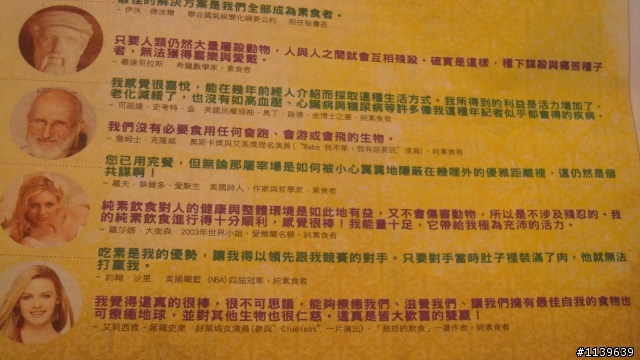 最佳的解決方案是我們全部成為素食者。
~ 伊沃・德波爾　聯合國氣候變化綱要公約　前任秘書長
只要人類仍然大量屠殺動物，人與人之間就會互相殘殺。確實是這樣，種下謀殺與痛苦種子
者，無法獲得喜樂與愛戴。
~ 畢達哥拉斯　希臘數學家，素食者
我感覺很喜悅，能在幾年前經人介紹而採取這種生活方式，我所得到的利益是活力增加了，
老化減緩了，也沒有如高血壓、心臟病與糖尿病等許多像我這種年紀者似乎都會得的疾病。
~ 可蕊塔・史考特・金　美國民權領袖，馬丁・路德・金博士之妻，純素食者
我們沒有必要食用任何會跑、會游或會飛的生物。
~ 詹姆士・克隆威　奧斯卡獎與艾美獎提名演員（"Babe 我不笨，我有話要說" 演員），純素食者
您已用完餐，但無論那屠宰場是如何被小心翼翼地隱蔽在幾哩外的優雅距離裡，這仍然是個
共謀啊！
~ 羅夫・華爾多・愛默生　美國詩人，作家與哲學家，素食者
純素飲食對人的健康與整體環境是如此地有益，又不會傷害動物，所以是不涉及殘忍的。我
的純素飲食進行得十分順利，感覺很棒！我能量十足，它帶給我極為充沛的活力。
~ 羅莎娜・大衛森　2003年世界小姐，愛爾蘭名模，純素食者
吃素是我的優勢，讓我得以領先跟我競賽的對手。只要對手當時肚子裡裝滿了肉，他就無法
打贏我。
~ 約翰・沙里　美國職籃 (NBA) 四屆冠軍，純素食者
我覺得這真的很棒，很不可思議，能夠療癒我們、滋養我們、讓我們擁有最佳自我的食物也
可療癒地球，並對其他生物也很仁慈。這真是皆大歡喜的雙贏！
~ 艾莉西雅・席維史東　好萊塢女演員(參與"Clueless"一片演出)，「慈悲的飲食」一書作者，純素食者
#1139639